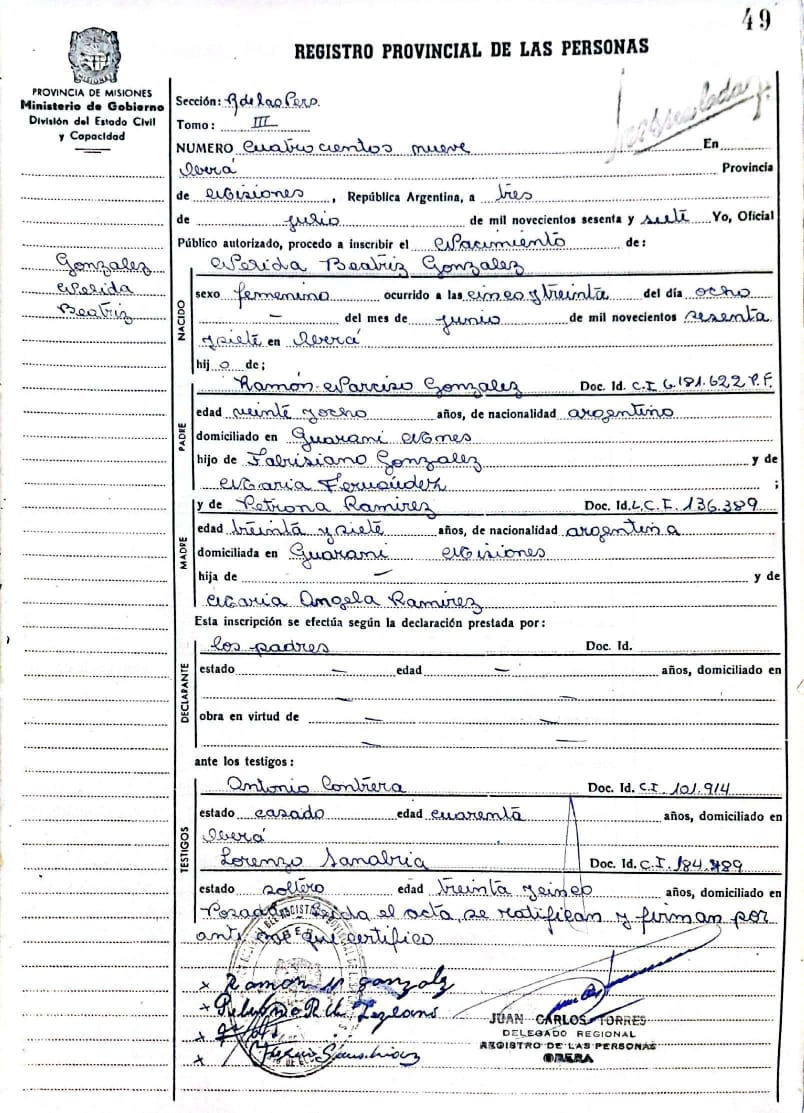 49
REGISTRO PROVINCIAL DE LAS PERSONAS
PROVINCIA DE MISIONES
Ministerio de Gobierno
División del Estado Civil
y Capacidad
Sección: R de las Pers.
Tomo: III
NUMERO cuatrocientos nueve En
Oberá Provincia
de Misiones, República Argentina, a tres
de julio de mil novecientos sesenta y siete Yo, Oficial
Público autorizado, procedo a inscribir el Nacimiento de:
Gonzalez
Nerida
Beatriz
NACIDO
Nerida Beatriz Gonzalez
sexo femenino ocurrido a las cinco y treinta del día ocho
— del mes de junio de mil novecientos sesenta
y siete en Oberá
hij a de;
PADRE
Ramón Narciso Gonzalez Doc. Id. C.I. 6.181.622 P.F.
edad veinte y ocho años, de nacionalidad argentino
domiciliado en Guarani Mnes
hijo de Fabrisiano Gonzalez y de
Maria Fernández ;
MADRE
y de Petrona Ramirez Doc. Id. L.C.I. 136.389
edad treinta y siete años, de nacionalidad argentina
domiciliada en Guarani Misiones
hija de — y de
Maria Angela Ramirez
Esta inscripción se efectúa según la declaración prestada por:
DECLARANTE
los padres Doc. Id.
estado — edad — años, domiciliado en
— —
obra en virtud de — —
— —
ante los testigos:
TESTIGOS
Antonio Contrera Doc. Id. C.I. 101.914
estado casado edad cuarenta años, domiciliado en
Oberá
Lorenzo Sanabria Doc. Id. C.I. 184.789
estado soltero edad treinta y cinco años, domiciliado en
Posadas Leida el acta, se ratifican y firman por
ante que certifico
x Ramon N gonzalz
x
x
x
JUAN CARLOS TORRES
DELEGADO REGIONAL
REGISTRO DE LAS PERSONAS
OBERA